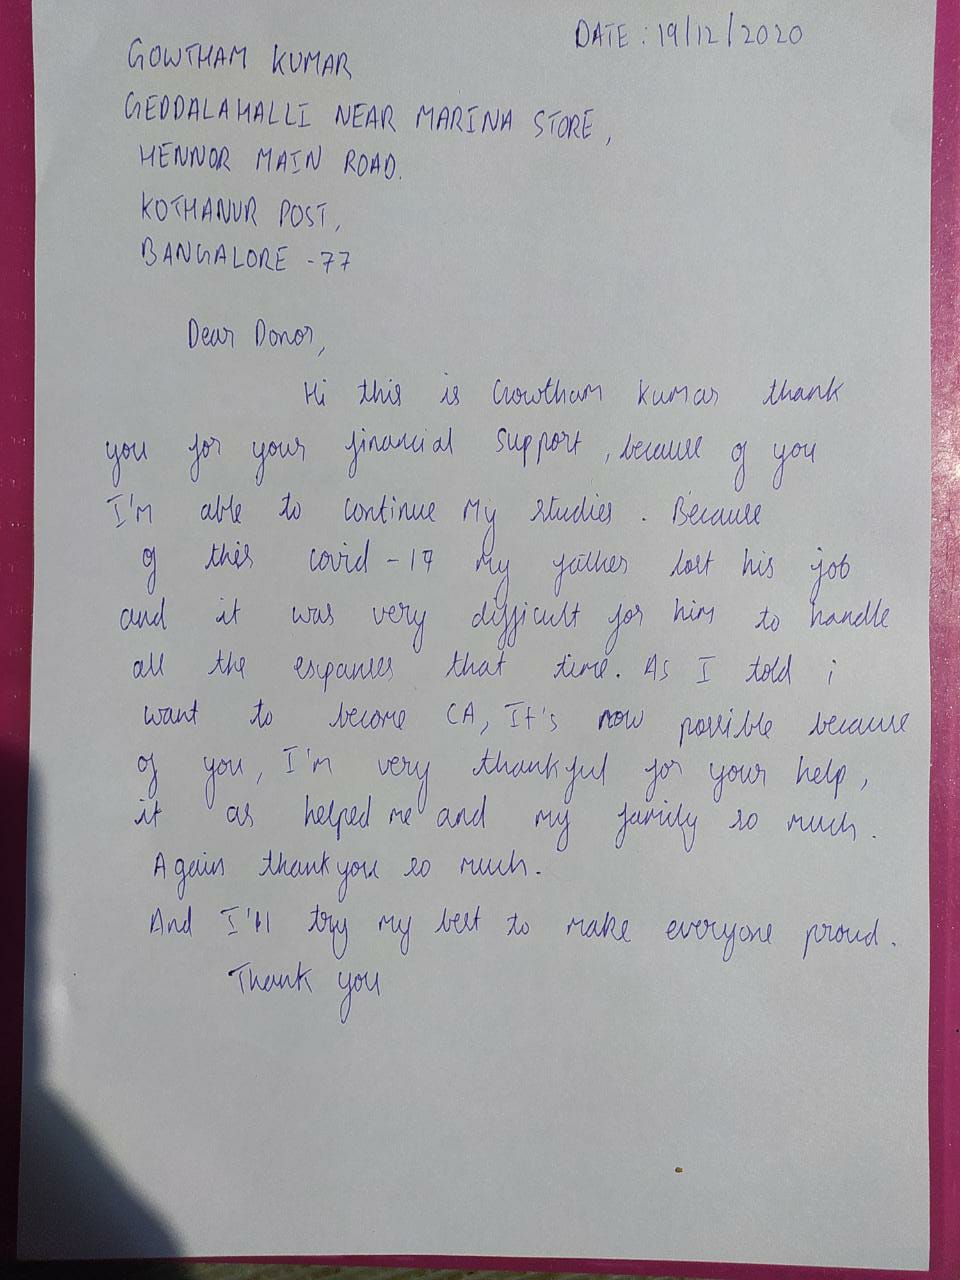 DATE : 19/12/2020
GOWTHAM KUMAR
GEDDALAHALLI NEAR MARINA STORE,
HENNOR MAIN ROAD.
KOTHANUR POST,
BANGALORE - 77
Dear Donor,
Hi this is Gowtham Kumar thank
you for your financial support, because of you
I'm able to continue My studies. Because
of this covid-19 my father lost his job
and it was very difficult for him to handle
all the expanses that time. As I told i
want to become CA, It's now possible because
of you, I'm very thankful for your help,
it as helped me and my family so much.
Again thankyou so much.
And I'll try my best to make everyone proud.
Thank you